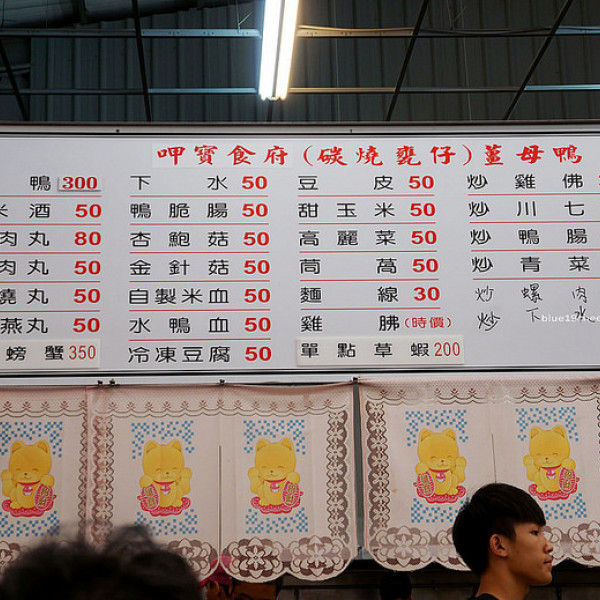 呷寶食府(碳燒甕仔)薑母鴨
鴨 300
米酒 50
肉丸 80
肉丸 50
燒丸 50
燕丸 50
螃蟹 350
下水 50
鴨脆腸 50
杏鮑菇 50
金針菇 50
自製米血 50
水鴨血 50
冷凍豆腐 50
豆皮 50
甜玉米 50
高麗菜 50
茼萵 50
麵線 30
雞胇(時價)
單點草蝦 200
炒雞佛
炒川七
炒鴨腸
炒青菜
炒螺肉
炒下水